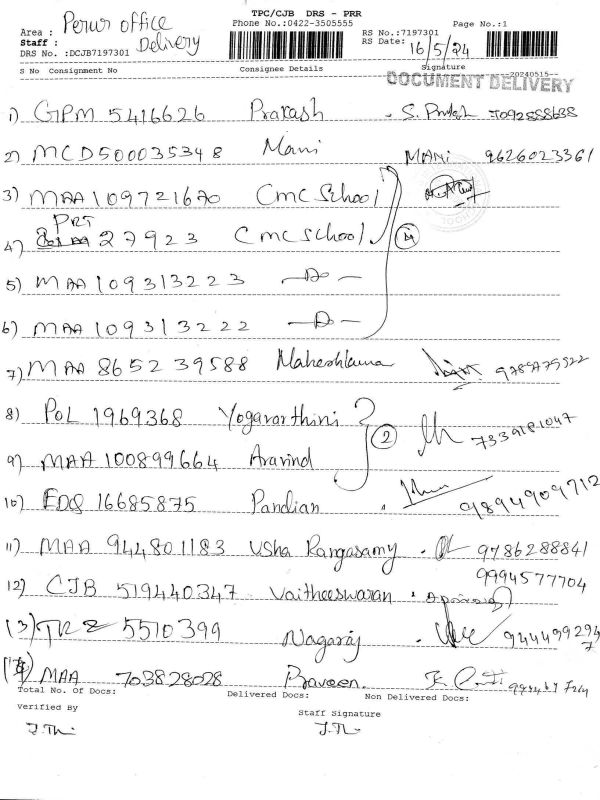 TPC/CJB DRS - PRR
Phone No.:0422-3505555
Page No.:1
Area : Perur office
Staff : Delivery
DRS No. :DCJB7197301
RS No.:7197301
RS Date: 16/5/24
S No Consignment No Consignee Details Signature --20240515--
DOCUMENT DELIVERY
1) GPM 5416626 Prakash
2) MCD500035348 Mani MANi 9626023361
3) MAA 109721670 CMC School
4) PRT 27923 CMC School 4
5) MAA 109313223 -Do-
6) MAA 109313222 -Do-
7) MAA 865239588
8) POL 1969368 Yogavarthini
9) MAA 100899664 Aravind 2
10) EDQ 16685875 Pandian 9894909712
11) MAA 944801183 Usha Rangasamy 9786288841
12) CJB 519440347 Vaitheeswaran 9994577704
13) 5510399 Nagaraj
14) MAA 703828028 Praveen.
Total No. Of Docs: Delivered Docs: Non Delivered Docs:
Verified By
Staff Signature